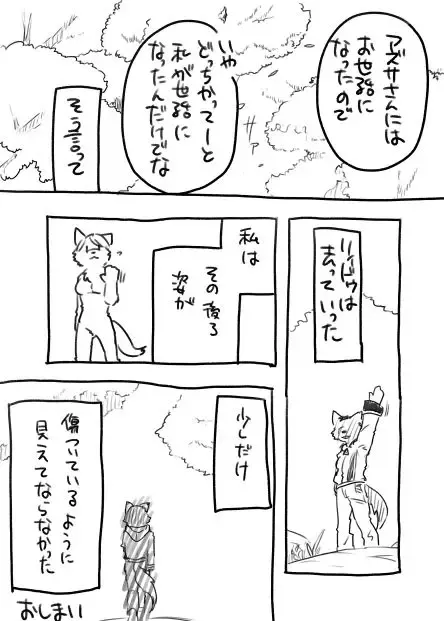 アズサさんには
お世話に
なったので
いや
どっちかってーと
私が世話に
なったんだけでな
そう言って
リィドゥは
去っていった
私は
その後ろ
姿が
少しだけ
傷ついているように
見えてならなかった
おしまい